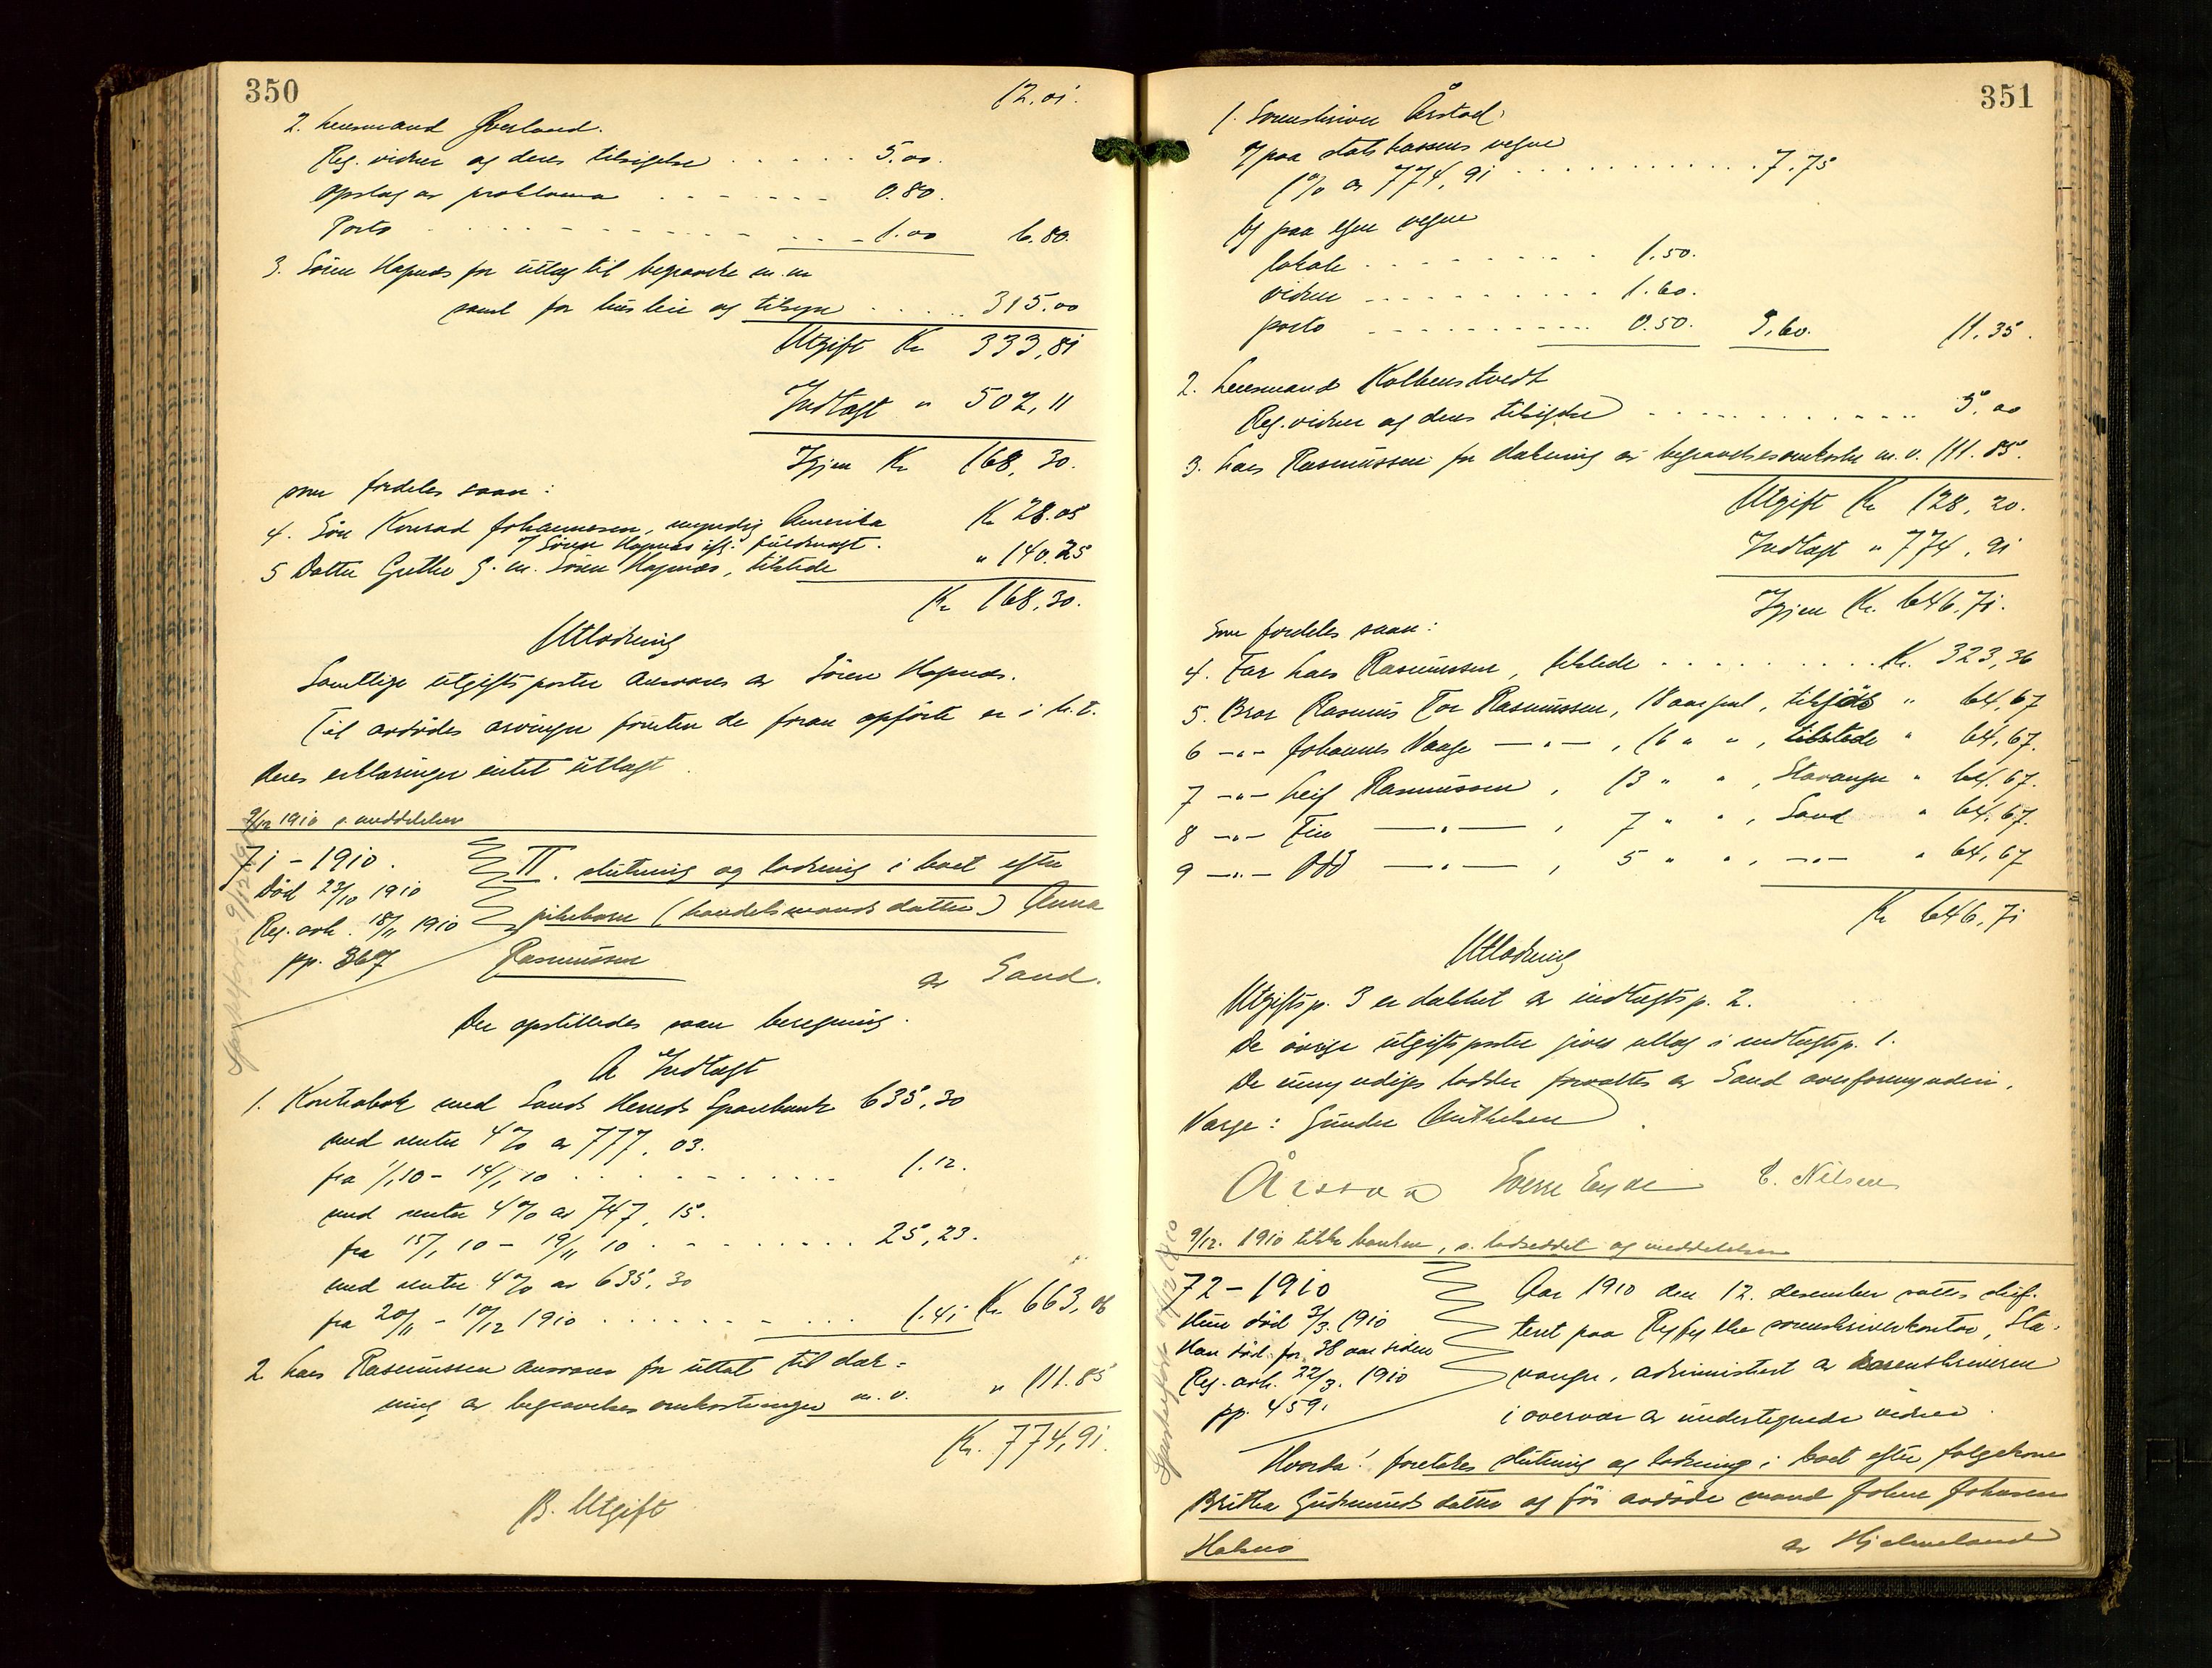 350
12.01.
2. Lensmand Øverland.
Reg. vidner og deres tilsigelse . . . . . 5.00.
Opslag av proklama . . . . . . 0.80.
Porto . . . . . . . 1.00 6.80.
3. Sören Hapnes for utlæg til begravelse m.m
samt for husleie og tilsyn . . . . . 315.00
Utgift Kr 333,81
Indtægt " 502,11
Igjen Kr 168,30.
som fordeles saan:
4. Sön Konrad Johannesen, myndig Amerika Kr 28.05
v/ Sören Hapnes ifl. fuldmagt.
5 Datter Grethe G. m. Sören Hapnes, tilstede " 140.25
Kr 168,30.
Utlodning
Samtlige utgiftsposter ansvares av Sören Hapnes.
Til avdödes arvinger foruten de foran opförte er i h.t.
deres erklæringer intet utlagt.
9/12 1910 s. meddelelser
71 - 1910.
Död 23/10 1910
Reg. avh. 18/11 1910
pp. 367
II. slutning og lodning i boet efter
pikebarn (handelsmands datter) Anna
Rasmussen
av Sand.
Der opstilledes saan beregning.
A Indtægt
1. Kontrabok med Sands Herreds Sparebank 635,30
med renter 4% av 777,03.
fra 1/1 10 - 14/1 10 . . . . . . . 1.12.
med renter 4% av 747,15.
fra 15/1 10 - 19/11 10 . . . . . . . 25,23.
med renter 4% av 635,30
fra 20/11 - 10/12 1910 . . . . . . . 1.41 Kr. 663,06
2. Lars Rasmussen ansvarer for uttat til dæk-
ning av begravelses omkostninger m.v. " 111.85
Kr. 774,91.
B. Utgift
351
1. Sorenskriver Årstad:
a) paa statskassens vegne
1% av 774,91 . . . . . . . . . . . 7.75
b) paa egne vegne
lokale . . . . . . . . 1.50.
vidner . . . . . . . . 1.60.
porto . . . . . . . . 0.50. 3,60. 11,35.
2. Lensmand Kolbenstvedt
Reg. vidner og deres tilsigelse . . . . . . . . . . 5.00
3. Lars Rasmussen for dækning av begravelsesomkostn. m.v. 111.85.
Utgift Kr 128,20.
Indtægt " 774,91
Igjen Kr. 646,71.
Som fordeles saan:
4. Far Lars Rasmussen, tilstede . . . . . . . . . Kr. 323,36
5. Bror Rasmus Tor Rasmussen, 18 aar gml, tilsjös " 64,67
6 -"- Johannes Vaage -"- , 16 " " , tilstede " 64,67.
7 -"- Leif Rasmussen , 13 " " , Stavanger " 64,67.
8 -"- Fin -"- , 7 " " , Sand " 64,67.
9 -"- Odd -"- , 5 " " , -"- " 64,67
Kr 646,71
Utlodning
Utgiftsp. 3 er dækket av indtægtsp. 2.
De övrige utgiftsposter gives utlæg i indtægtsp. 1.
De umyndiges lodder forvaltes av Sand overformynderi.
Værge: Gunder
Årstad Sverre C. Nilsen
9/12. 1910 tilskr banken, s. lodseddel og meddelelser
72 - 1910
Hun död 3/3. 1910
Han död for 38 aar siden
Reg. avh. 22/3. 1910
pp. 459.
Aar 1910 den 12. desember sattes skif-
teret paa Ryfylke sorenskriverkontor, Sta-
vanger, administrert av sorenskriveren
i overvær av undertegnede vidner.
Hvorda! foretokes slutning og lodning i boet efter folgekone
Britha Gudmundsdatter og för avdöde mand Johne Johnsen
av Hjelmeland